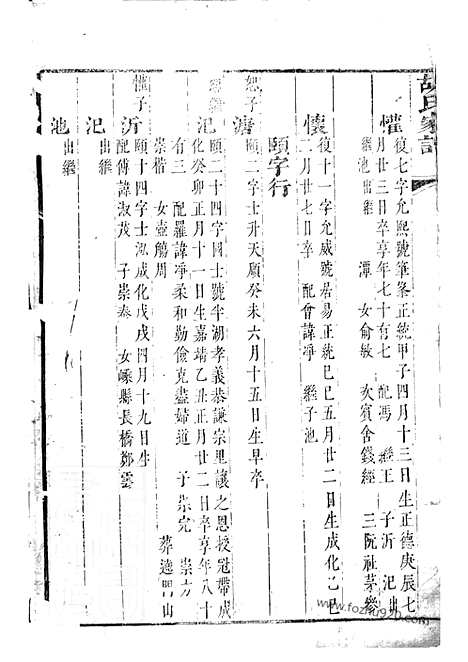 胡氏家譜
懽 復七字允熙號筆峯正統甲子四月十三日生正德庚辰七
月廿三日卒享年七十有七 配馮 繼王 子沂 汜出
繼池出繼 潭 女俞敏 次賓舍錢經 三阮社茅
懷 復十一字允威號居易正統己巳五月廿二日生成化己巳
二月廿七日卒 配會諱凈 繼子池
頤字行
恕子 濟 頤二字士升天順癸未六月十五日生早卒
汜 頤二十四字國士號半湖孝義恭謙宗里讓之恩授冠帶成
化癸卯正月十一日生嘉靖乙丑正月廿二日卒享年八十
有三 配羅諱凈柔和勤儉克盡婦道 子崇完 崇方
崇楷 女壺觴周 葬 山
懽子 沂 頤十四字士泓成化戊戌四月十九日生
配傅諱淑茂 子崇奉 女嵊縣長橋鄭雲
汜 出繼
池 出繼
www.fozhu920.com